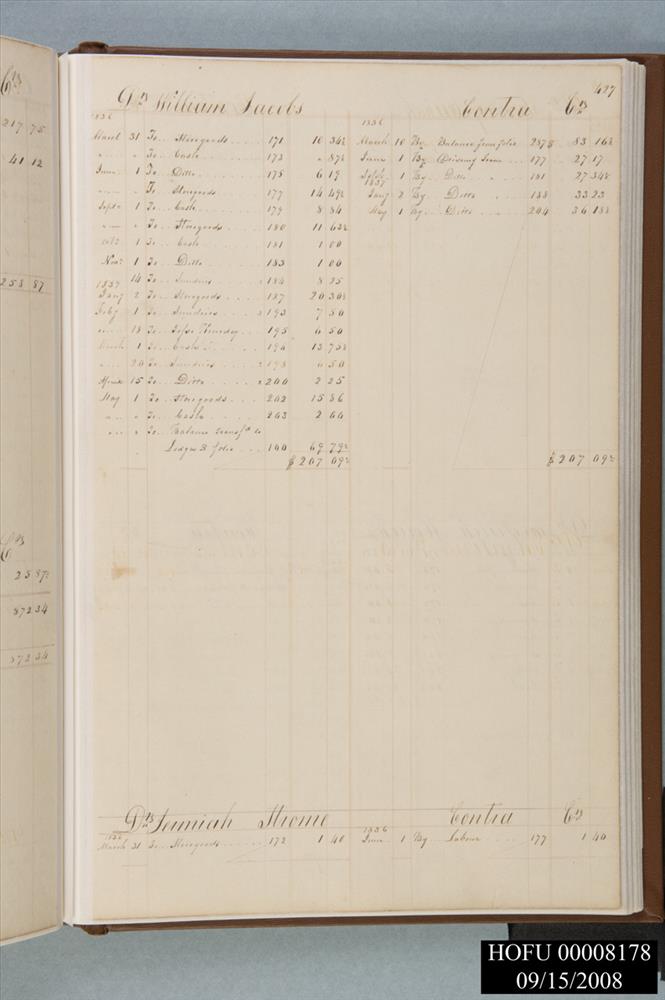 427
Dr William Jacobs Contra Cr
1836
March 31 To Storegoods 171 10 34½
" " To Cash 173 " 87½
June 1 To Ditto 175 6 19
" " To Storegoods 177 14 49½
Septr 1 To Cash 179 8 84
" " To Storegoods 180 11 63½
Octr 1 To Cash 181 1 00
Novr 1 To Ditto 183 1 00
" 14 To Sundries 184 8 25
1837
Jany 2 To Storegoods 187 20 30½
Feby 1 To Sundries 193 7 50
" 18 To Jesse Thursday 195 6 50
March 1 To Cash 196 13 75½
" 20 To Sundries 198 6 50
Apriel 15 To Ditto 200 2 25
May 1 To Storegoods 202 15 86
" " To Cash 203 2 00
" " To Balance transfd to
Ledger B folio 100 69 79½
$207 09½
1836
March 10 By Balance from folio 287 83 16½
June 1 By Driving Team 177 27 17
Septr 1 By Ditto 181 27 34½
1837
Jany 2 By Ditto 188 33 23
May 1 By Ditto 204 36 18½
$207 09½
Dr Jerimiah Strome Contra Cr
1836
March 31 To Storegoods 172 1 40
1836
June 1 By Labour 177 1 40
Cr
217 75
41 12
258 87
Cr
25 87½
872 34
872 34
HOFU 00008178
09/15/2008